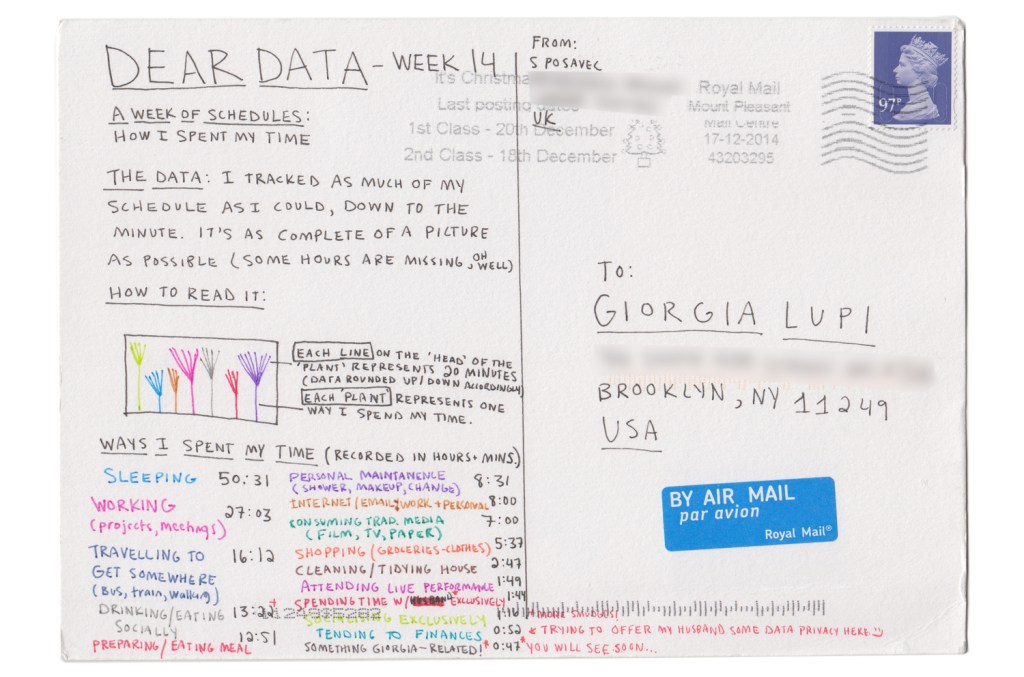 DEAR DATA - WEEK 14
A WEEK OF SCHEDULES:
HOW I SPENT MY TIME
THE DATA: I TRACKED AS MUCH OF MY
SCHEDULE AS I COULD, DOWN TO THE
MINUTE. IT'S AS COMPLETE OF A PICTURE
AS POSSIBLE (SOME HOURS ARE MISSING, OH WELL)
HOW TO READ IT:
EACH LINE ON THE 'HEAD' OF THE
'PLANT' REPRESENTS 20 MINUTES
(DATA ROUNDED UP/DOWN ACCORDINGLY)
EACH 'PLANT' REPRESENTS ONE
WAY I SPEND MY TIME.
WAYS I SPENT MY TIME (RECORDED IN HOURS + MINS.)
SLEEPING 50:31
WORKING 27:03
(projects, meetings)
TRAVELLING TO 16:12
GET SOMEWHERE
(Bus, train, walking)
DRINKING/EATING 13:22
SOCIALLY
PREPARING/EATING MEAL 12:51
PERSONAL MAINTANENCE 8:31
(SHOWER, MAKEUP, CHANGE)
INTERNET/EMAIL: WORK + PERSONAL 8:00
CONSUMING TRAD. MEDIA 7:00
(FILM, TV, PAPER)
SHOPPING (GROCERIES-CLOTHES) 5:37
CLEANING/TIDYING HOUSE 2:47
ATTENDING LIVE PERFORMANCE 1:49
* SPENDING TIME W/ HUSBAND* EXCLUSIVELY 1:44
SOCIALISING EXCLUSIVELY 1:16
TENDING TO FINANCES 0:52
SOMETHING GIORGIA-RELATED!* 0:47*
FROM:
S POSAVEC
UK
It's Christmas
Last posting dates
1st Class - 20th December
2nd Class - 18th December
Royal Mail
Mount Pleasant
Mail Centre
17-12-2014
43203295
97P
TO:
GIORGIA LUPI
BROOKLYN, NY 11249
USA
BY AIR MAIL
par avion
Royal Mail®
* MORE SMUDGES!
* TRYING TO OFFER MY HUSBAND SOME DATA PRIVACY HERE.
YOU WILL SEE SOON...